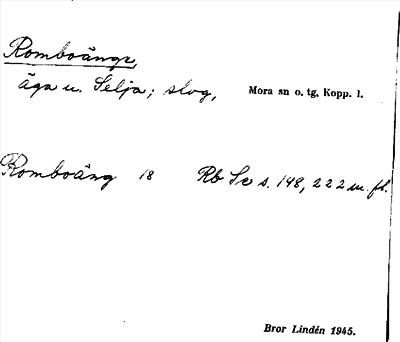 Romboängr,
äga u. Selja; slog, Mora sn o. tg, Kopp. l.
Romboäng 18 Rb Se s. 148, 222 m. fl.
Bror Lindén 1945.